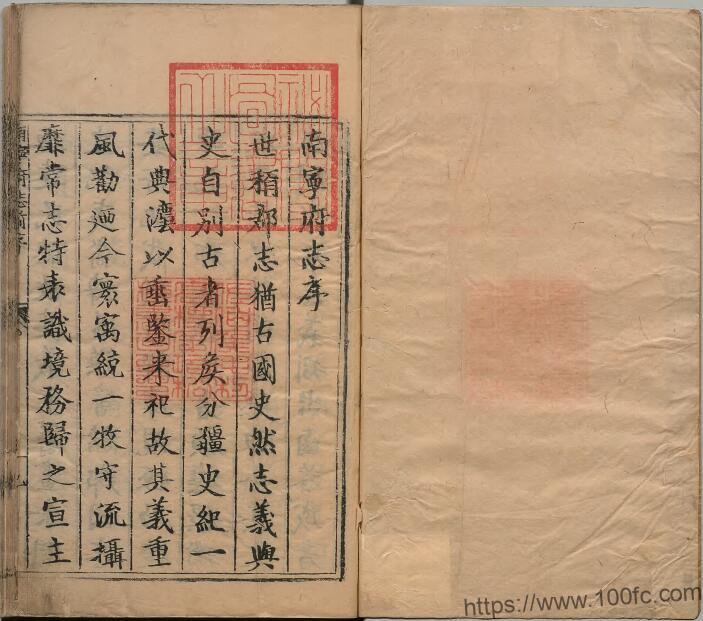 南寧府志序
世稱郡志猶古國史然志義與
史自别古者列矦分疆史紀一
代典灋以垂鑒来祀故其義重
風勸迺今寰㝢統一牧守流攝
靡常志特表識境務歸之宣主
https://www.100fc.com